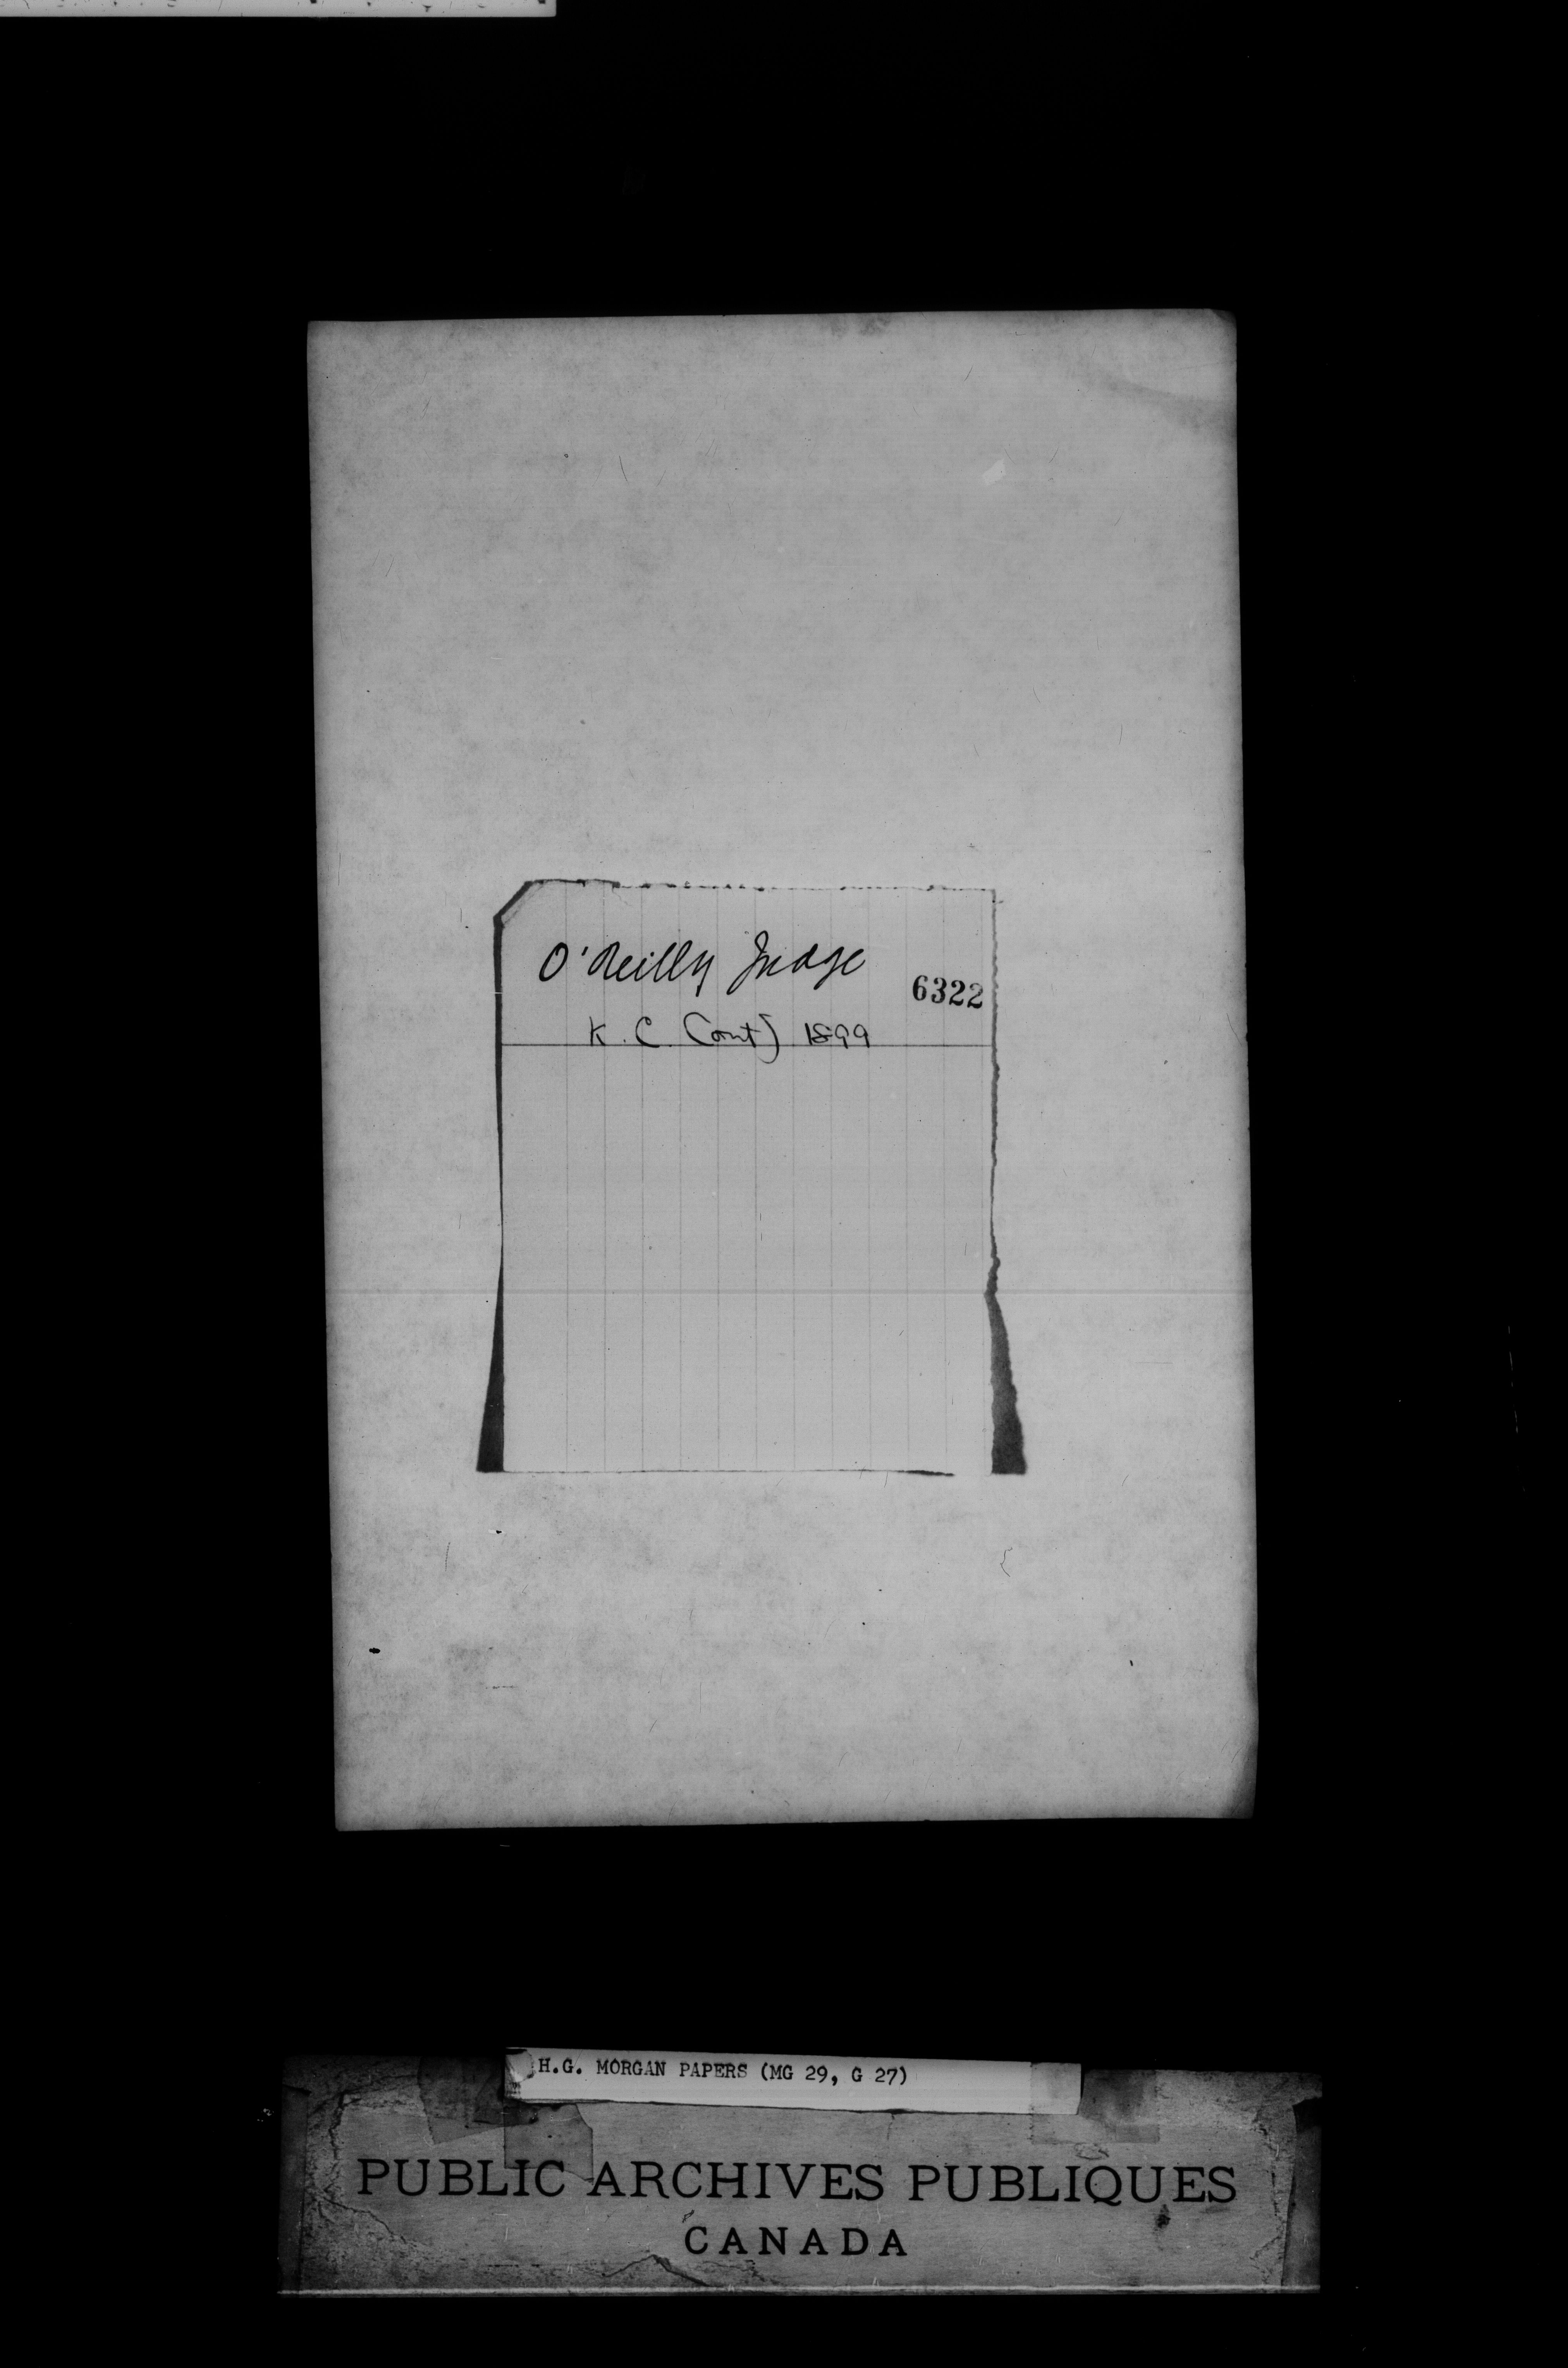 O'Reilly Judge
6322
K.C. (Ont) 1899
H.G. MORGAN PAPERS (MG 29, G 27)
PUBLIC ARCHIVES PUBLIQUES
CANADA